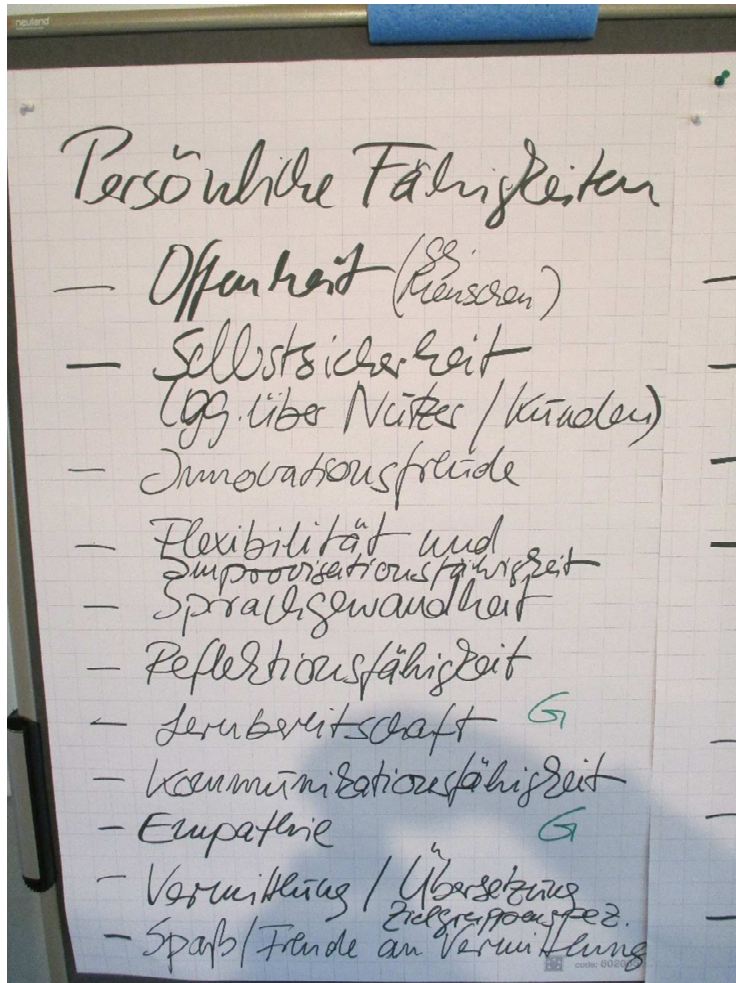 neuland
Persönliche Fähigkeiten
– Offenheit (gg. Menschen)
– Selbstsicherheit
(gg.über Nutzer / Kunden)
– Innovationsfreude
– Flexibilität und
Improvisationsfähigkeit
– Sprachgewandheit
– Reflektionsfähigkeit
– Lernbereitschaft G
– Kommunikationsfähigkeit
– Empathie G
– Vermittlung / Übersetzung
zielgruppenspez.
– Spaß / Freude an Vermittlung
code: